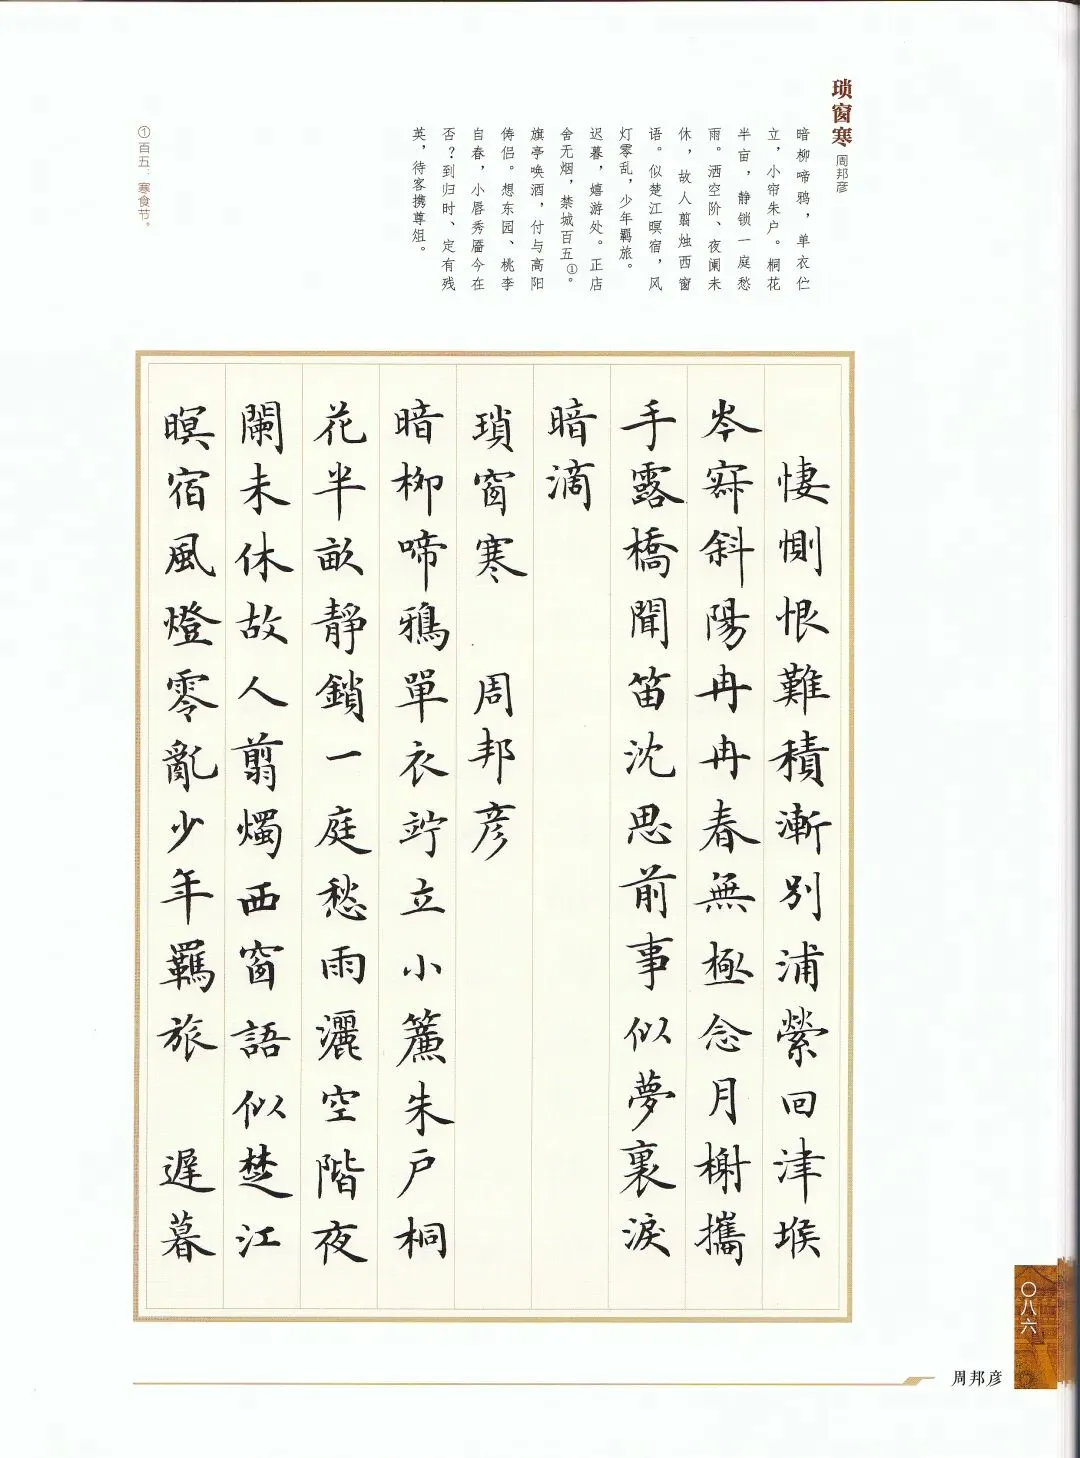 琐窗寒 周邦彦
暗柳啼鸦，单衣伫
立，小帘朱户。桐花
半亩，静锁一庭愁
雨。洒空阶、夜阑未
休，故人剪烛西窗
语。似楚江暝宿，风
灯零乱，少年羁旅。
迟暮，嬉游处。正店
舍无烟，禁城百五①。
旗亭唤酒，付与高阳
俦侣。想东园、桃李
自春，小唇秀靥今在
否？到归时、定有残
英，待客携尊俎。
①百五：寒食节。
悽惻恨難積漸別浦縈回津堠
岑寂斜陽冉冉春無極念月榭攜
手露橋聞笛沈思前事似夢裏淚
暗滴
瑣窗寒 周邦彦
暗柳啼鴉單衣竚立小簾朱戶桐
花半畝靜鎖一庭愁雨灑空階夜
闌未休故人翦燭西窗語似楚江
暝宿風燈零亂少年羈旅 遲暮
周邦彦
〇八六